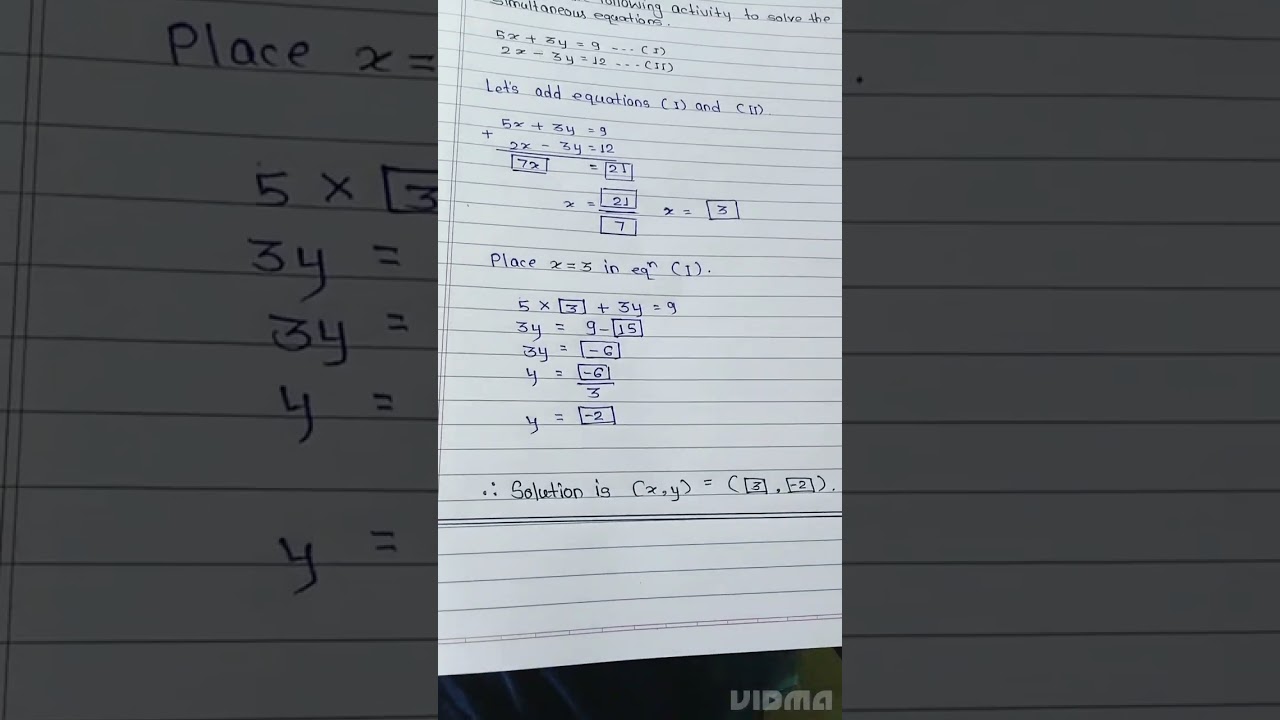 following activity to solve the
simultaneous equations.
5x + 3y = 9 --- (I)
2x - 3y = 12 --- (II)
Let's add equations (I) and (II).
5x + 3y = 9
+ 2x - 3y = 12
7x = 21
x = 21/7 x = 3
Place x = 3 in eqⁿ (I).
5 × 3 + 3y = 9
3y = 9 - 15
3y = -6
y = -6/3
y = -2
∴ Solution is (x, y) = (3, -2).
Place x =
5 × 3
3y =
3y =
y =
y =
VIDMA